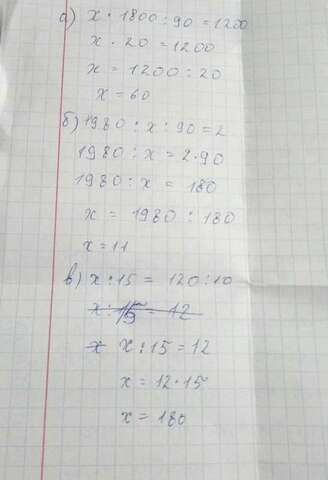 а) x · 1800 : 90 = 1200
x · 20 = 1200
x = 1200 : 20
x = 60
б) 1980 : x : 90 = 2
1980 : x = 2 · 90
1980 : x = 180
x = 1980 : 180
x = 11
в) x : 15 = 120 : 10
x : 15 = 12
x x : 15 = 12
x = 12 · 15
x = 180